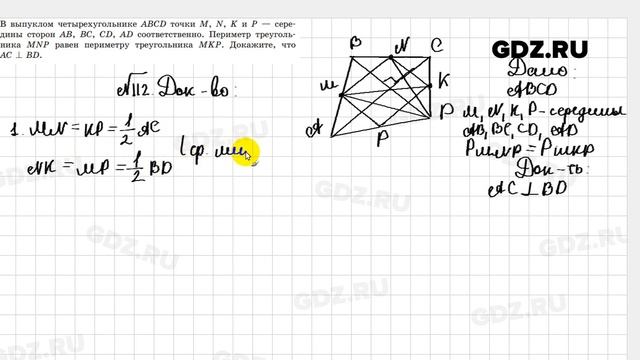 В выпуклом четырехугольнике ABCD точки M, N, K и P — сере-
дины сторон AB, BC, CD, AD соответственно. Периметр треуголь-
ника MNP равен периметру треугольника MKP. Докажите, что
AC ⊥ BD.
GDZ.RU
№112. Док-во:
1. MN = KP = 1/2 AC
NK = MP = 1/2 BD
(ср. лин
B N C
M K
A P D
Дано:
ABCD
M, N, K, P- середины
AB, BC, CD, AD
Pмnp = Pмкр
Док-ть:
AC ⊥ BD
GDZ.RU
GDZ.RU
GDZ.RU
GDZ.RU